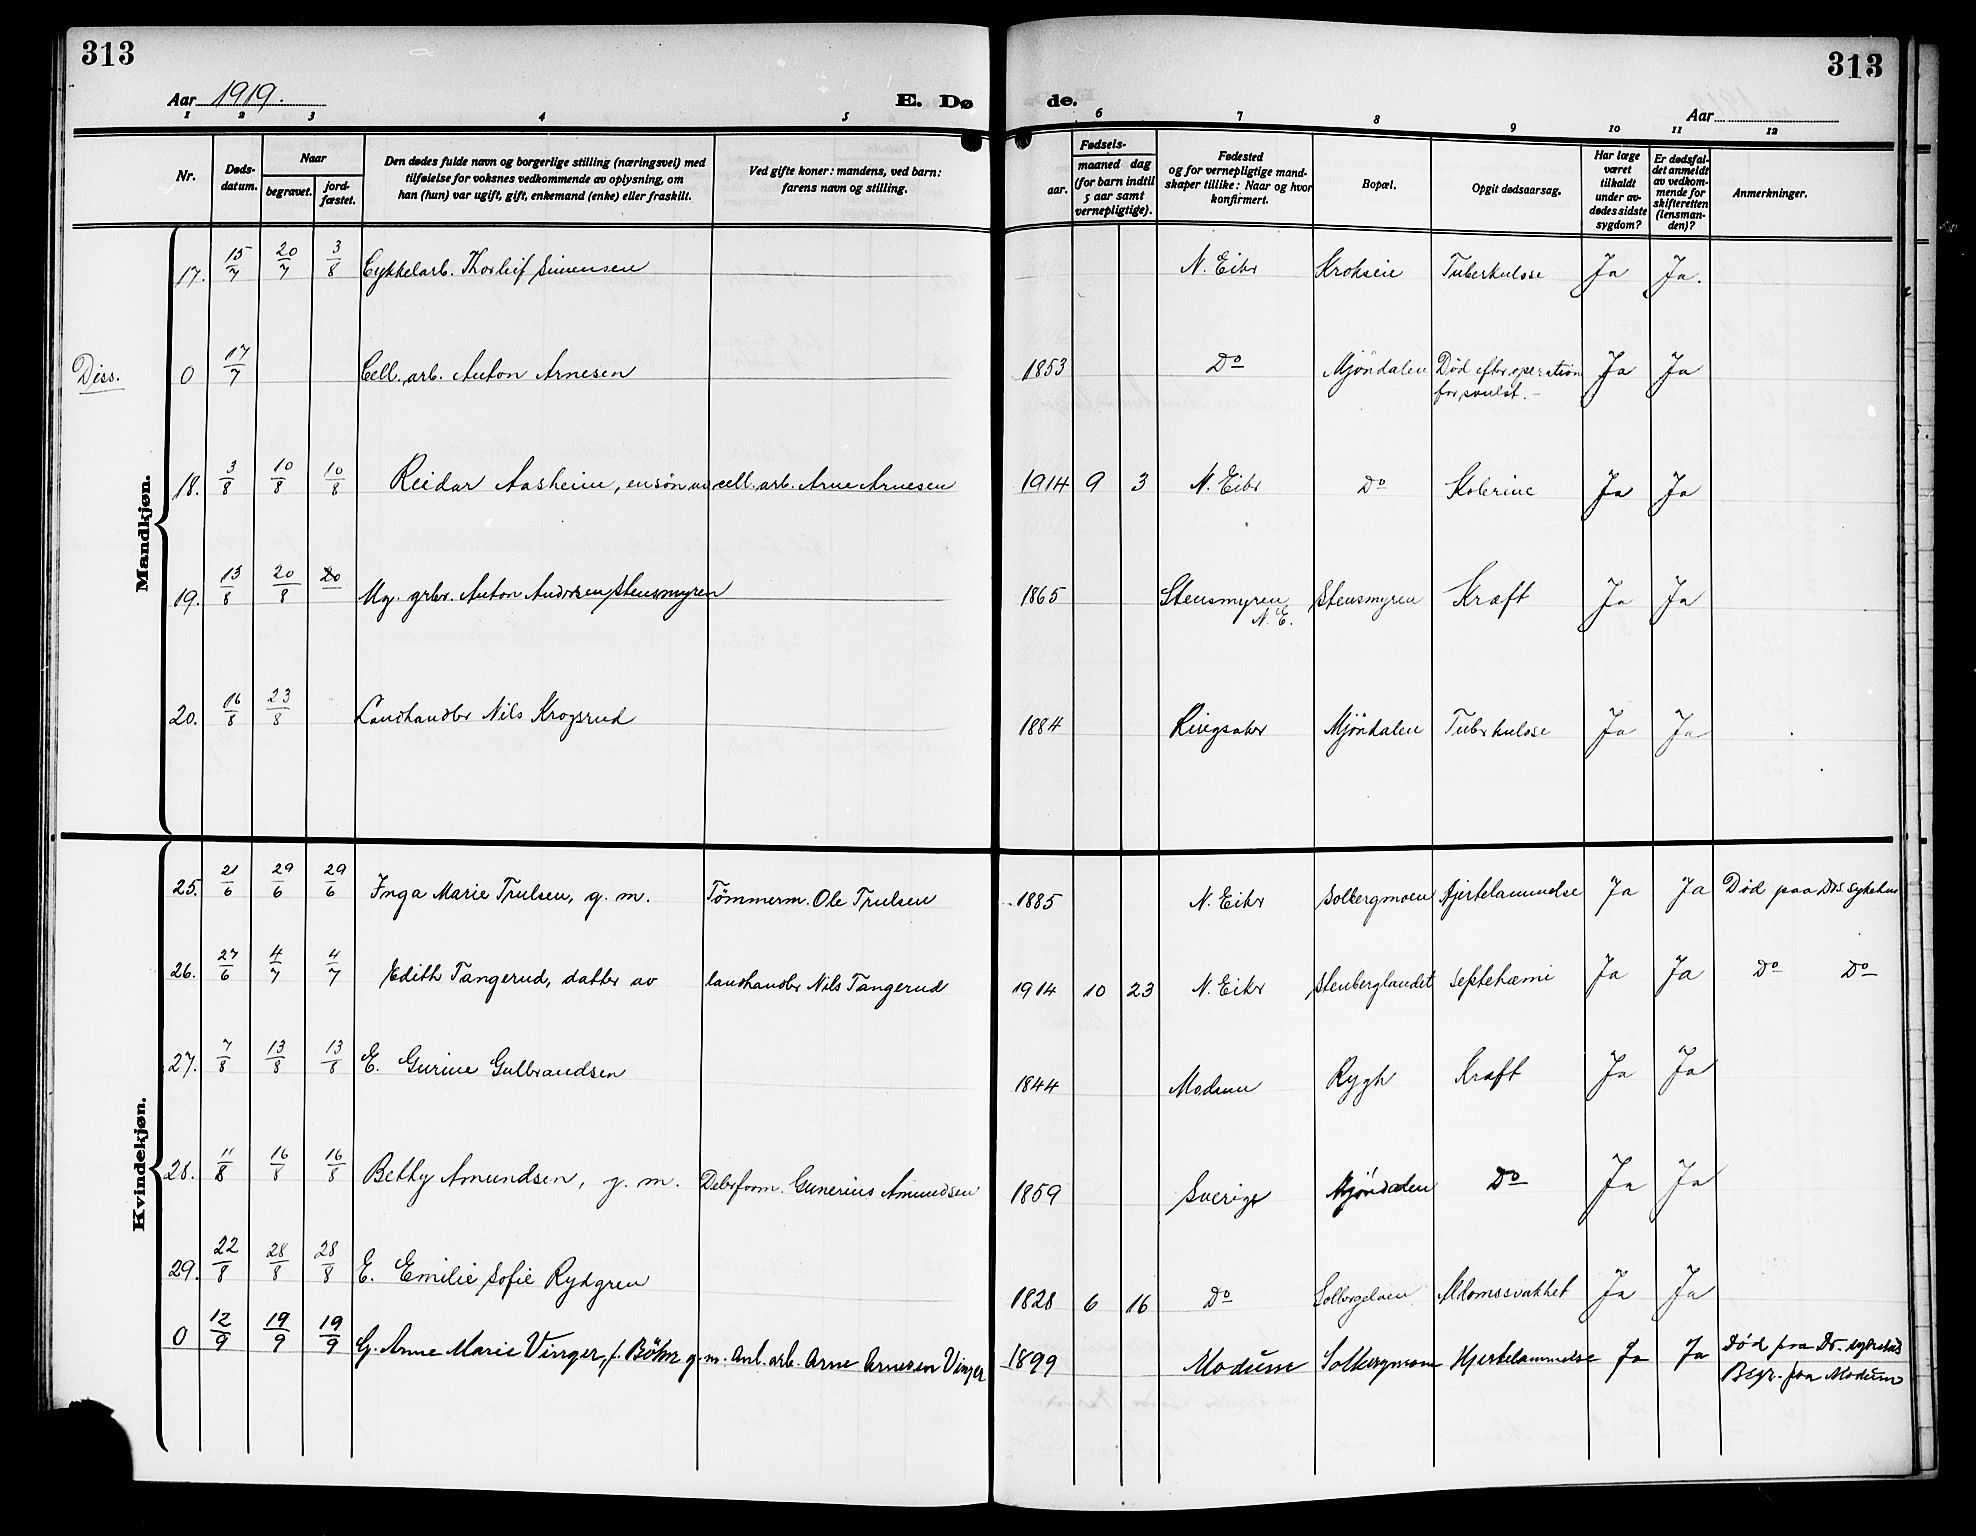 313
313
Aar 1919.
E. Dø
de.
Aar
1 2 3 4 5 6 7 8 9 10 11 12
Nr.
Døds-
datum.
Naar
begravet.
jord-
fæstet.
Den dødes fulde navn og borgerlige stilling (næringsvei) med
tilføielse for voksnes vedkommende av oplysning, om
han (hun) var ugift, gift, enkemand (enke) eller fraskilt.
Ved gifte koner: mandens, ved barn:
farens navn og stilling.
Fødsels-
aar.
maaned dag
(for barn indtil
5 aar samt
vernepligtige).
Fødested
og for vernepligtige mand-
skaper tillike: Naar og hvor
konfirmert.
Bopæl.
Opgit dødsaarsag.
Har læge
været
tilkaldt
under av-
dødes sidste
sygdom?
Er dødsfal-
det anmeldt
av vedkom-
mende for
skifteretten
(lensman-
den)?
Anmerkninger.
Mandkjøn.
17. 15/7 20/7 3/8 Cykkelarb. Thorleif Simensen N. Eiker Tuberkulose Ja Ja.
Diss. 0 17/7 Cell. arb. Anton Arnesen 1853 Do Mjöndalen Död efter operation Ja Ja
for svulst.
18. 3/8 10/8 10/8 Reidar Aasheim, en sön av cell. arb. Arne Arnesen 1914 9 3 N. Eiker Do Kolerine Ja Ja
19. 13/8 20/8 20 Mg. grbr. Anton Andersen Stensmyren 1865 Stensmyren Stensmyren Kræft Ja Ja
N. E.
20. 16/8 23/8 Landhandler Nils Krogsrud 1884 Ringsaker Mjöndalen Tuberkulose Ja Ja
Kvindekjøn.
25. 21/6 29/6 29/6 Inga Marie Trulsen, g. m. Tömmerm. Ole Trulsen 1885 N. Eiker Solbergmoen Hjertelammelse Ja Ja Död paa Drs. sykehus
26. 27/6 4/7 4/7 Edith Tangerud, datter av landhandler Nils Tangerud 1914 10 23 N. Eiker Stenberglandet Septehæmi Ja Ja Do Do
27. 7/8 13/8 13/8 E. Gurine Gulbrandsen 1844 Modum Rygh Kræft Ja Ja
28. 11/8 16/8 16/8 Betty Amundsen, g. m. Gunerius Amundsen 1859 Sverige Mjöndalen Do Ja Ja
29. 22/8 28/8 28/8 E. Emilie Sofie Rydgren 1828 6 16 Do Solbergelven Aldomssvakhet Ja Ja
0 12/9 19/9 19/9 G. Anne Marie Vinger, f. Böhn g. m. Anl. arb. Arne Arnesen Vinger 1899 Modum Solbergmoen Hjertelammelse Ja Ja Död paa Dr. sykehus
Begr. paa Modum